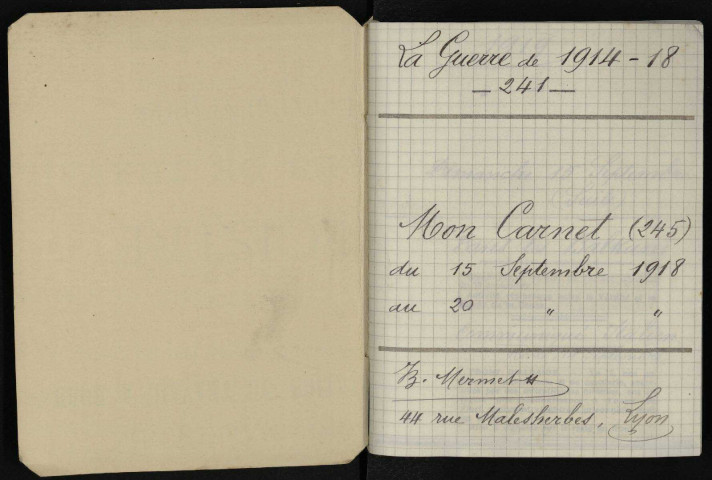 La Guerre de 1914-18
— 241 —
Mon Carnet (245)
du 15 Septembre 1918
au 20 " "
B. Mermet
44 rue Malesherbes, Lyon